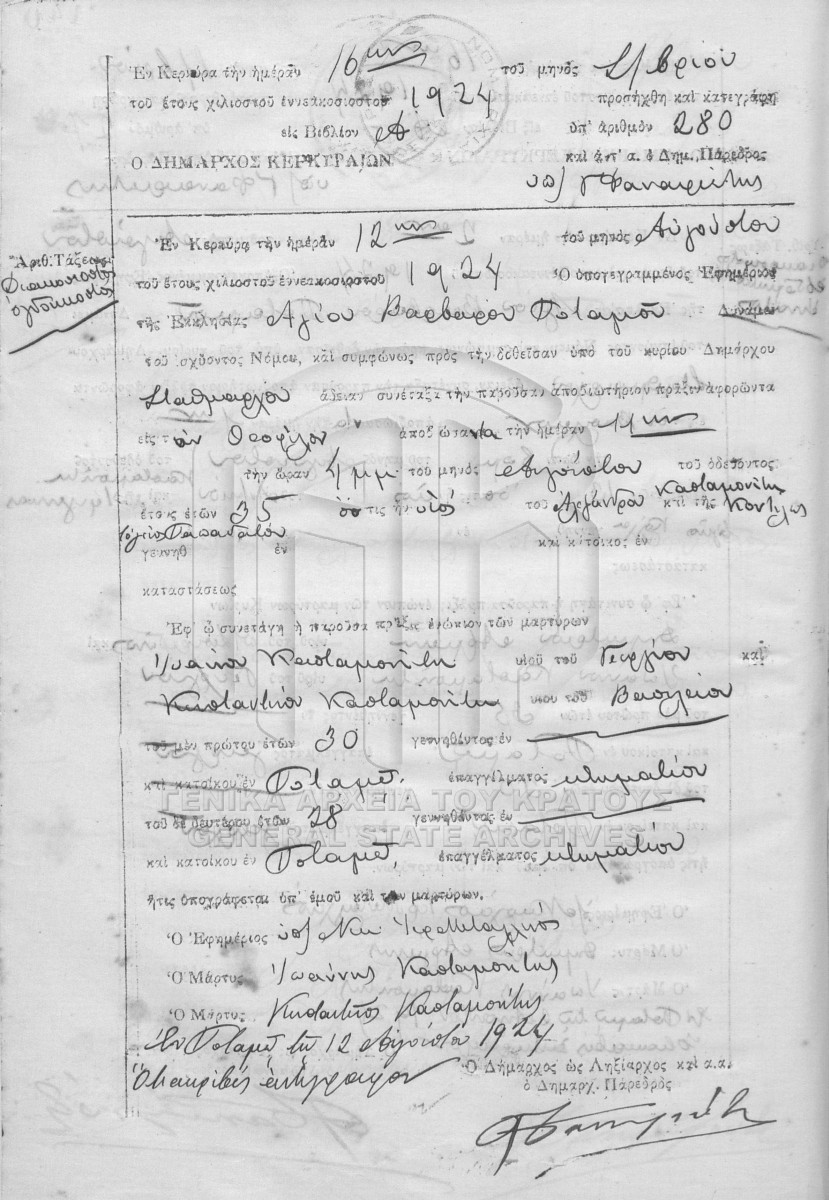 Ἐν Κερκύρᾳ τὴν ἡμέραν 16ην τοῦ μηνὸς 8/βρίου
τοῦ ἔτους χιλιοστοῦ ἐννεακοσιοστοῦ 1924 προσήχθη καὶ κατεγράφη
εἰς Βιβλίον Α ὑπ' ἀριθμὸν 280
Ο ΔΗΜΑΡΧΟΣ ΚΕΡΚΥΡΑΙΩΝ καὶ ἀντ' α. ὁ Δημ. Πάρεδρος
ὑπ)
Ἐν Κερκύρᾳ τὴν ἡμέραν 12ην τοῦ μηνὸς Αὐγούστου
Ἀριθ. Τάξεως
Διακοσιοστὸς
ὀγδοηκοστὸς
τοῦ ἔτους χιλιοστοῦ ἐννεακοσιοστοῦ 1924 Ὁ ὑπογεγραμμένος Ἐφημέριος
τῆς Ἐκκλησίας Ἁγίου Βαρβάρου Ποταμοῦ Δυνάμει
τοῦ ἰσχύοντος Νόμου, καὶ συμφώνως πρὸς τὴν δοθεῖσαν ὑπὸ τοῦ κυρίου Δημάρχου
ἄδειαν συνέταξα τὴν παροῦσαν ἀποβιωτήριον πρᾶξιν ἀφορῶντα
εἰς τὸν Θεοφίλον ἀποβιώσαντα τὴν ἡμέραν 11ην
τὴν ὥραν 4 μμ. τοῦ μηνὸς Αὐγούστου τοῦ ὁδεύοντος
ἔτους ἐτῶν 35 ὅστις ἦν υἱὸς τοῦ Ἀλεξάνδρου Κασταμονίτη καὶ τῆς
γεννηθ ἐν καὶ κάτοικος ἐν
καταστάσεως
Ἐφ' ᾧ συνετάγη ἡ παροῦσα πρᾶξις ἐνώπιον τῶν μαρτύρων
Ἰωάννου Κασταμονίτη υἱοῦ τοῦ Γεωργίου καὶ
Κωσταντίνου Κασταμονίτη υἱοῦ τοῦ Βασιλείου
τοῦ μὲν πρώτου ἐτῶν 30 γεννηθέντος ἐν
καὶ κατοίκου ἐν Ποταμῷ, ἐπαγγέλματος κτηματίου
ΓΕΝΙΚΑ ΑΡΧΕΙΑ ΤΟΥ ΚΡΑΤΟΥΣ
τοῦ δὲ δευτέρου ἐτῶν 28 γεννηθέντος ἐν
GENERAL STATE ARCHIVES
καὶ κατοίκου ἐν Ποταμῷ, ἐπαγγέλματος κτηματίου
ἥτις ὑπογράφεται ὑπ' ἐμοῦ καὶ τῶν μαρτύρων.
Ὁ Ἐφημέριος ὑπ) Νικ
Ὁ Μάρτυς Ἰωάννης Κασταμονίτης
Ὁ Μάρτυς Κωσταντῖνος Κασταμονίτης
Ἐν Ποταμῷ τῇ 12 Αὐγούστου 1924
Ὅτι ἀκριβὲς ἀντίγραφον
Ὁ Δήμαρχος ὡς Ληξίαρχος καὶ α.α.
ὁ Δημαρχ. Πάρεδρος